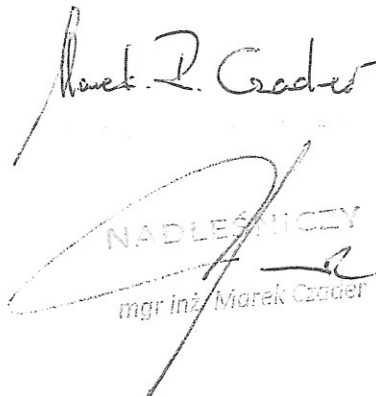 Marek. P. Czader
NADLEŚNICZY
mgr inż. Marek Czader